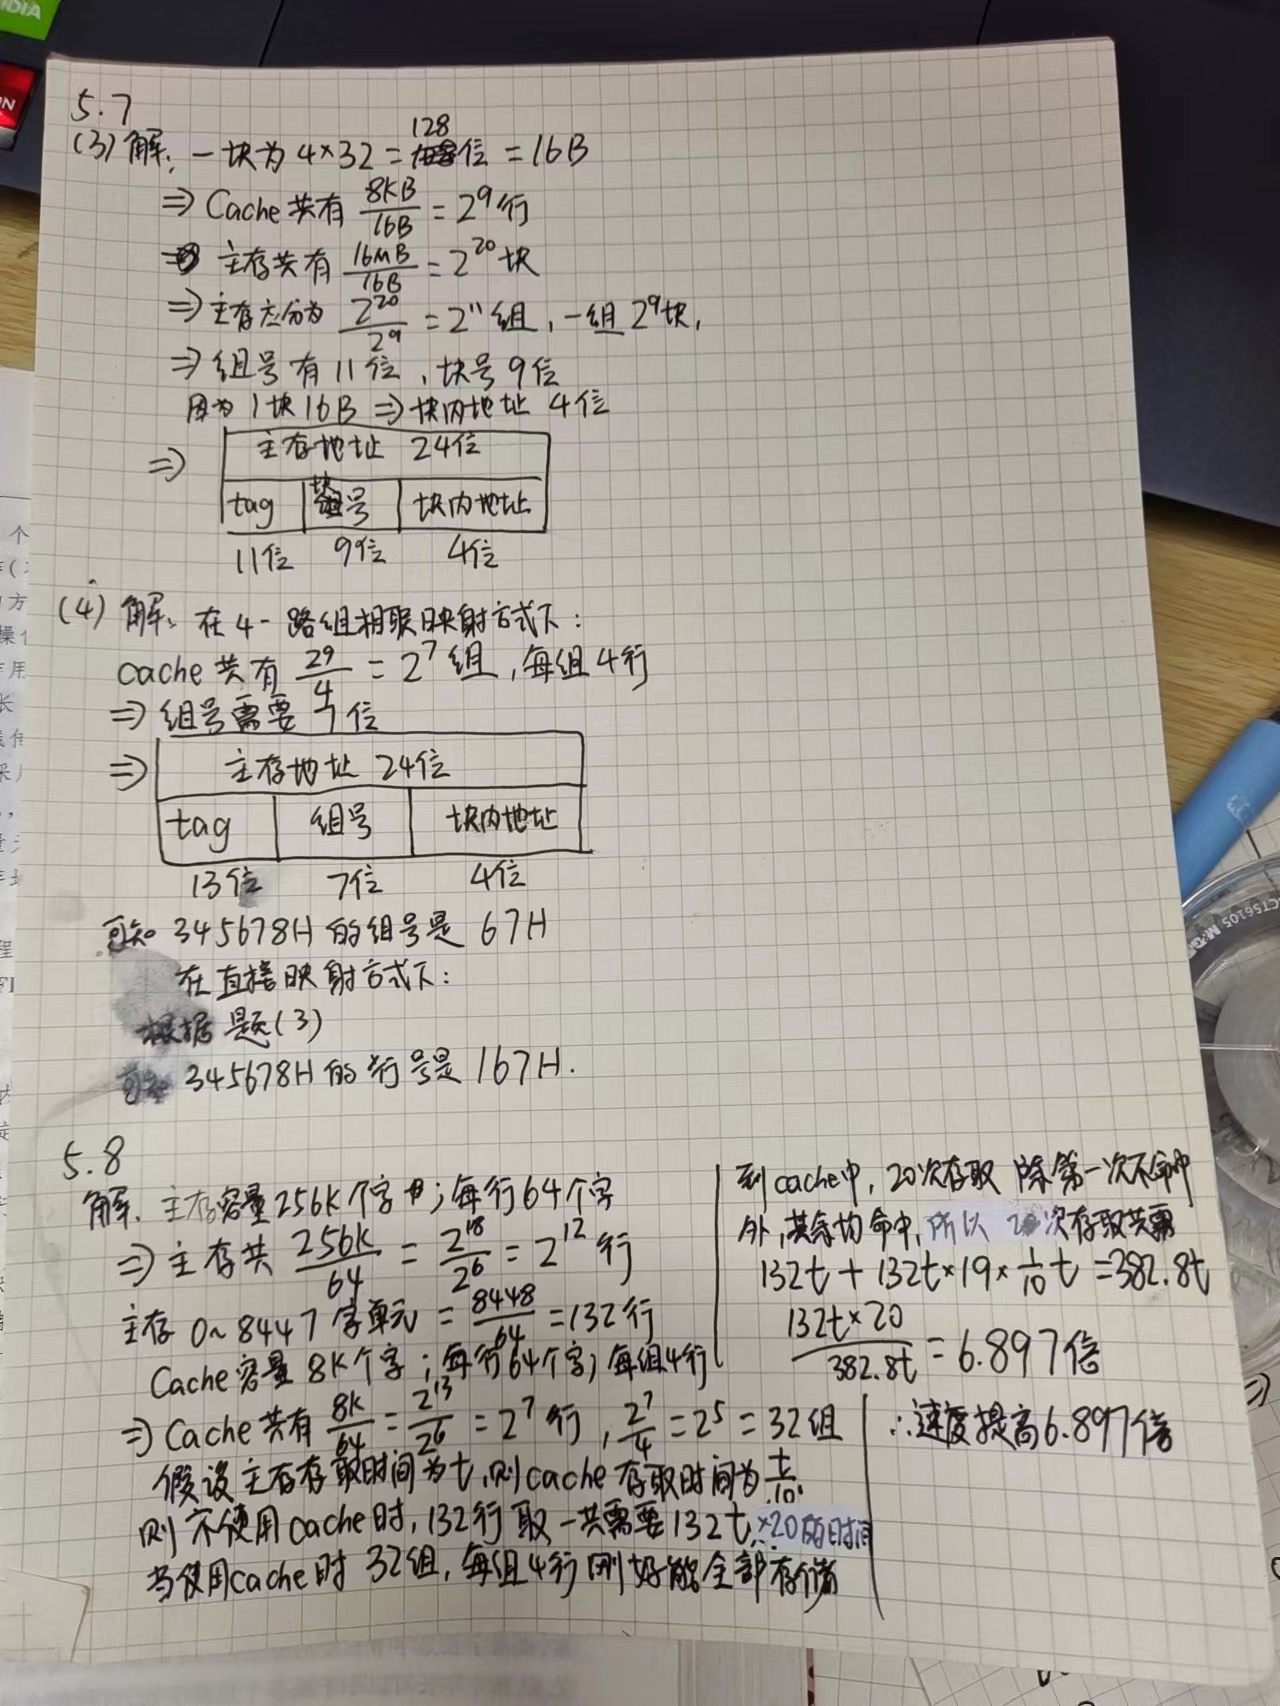 5.7
(3) 解: 一块为 4×32 = 128位 = 16B
⇒ Cache共有 8KB/16B = 2^9行
⇒ 主存共有 16MB/16B = 2^20块
⇒ 主存应分为 2^20/2^9 = 2^11组, 一组 2^9块,
⇒ 组号有 11位, 块号 9位
因为 1块16B ⇒ 块内地址 4位
⇒ 主存地址 24位
tag 块号 块内地址
11位 9位 4位
(4) 解: 在4-路组相联映射方式下:
Cache共有 2^9/4 = 2^7组, 每组4行
⇒ 组号需要 7位
⇒ 主存地址 24位
tag 组号 块内地址
13位 7位 4位
可知 345678H 的组号是 67H
在直接映射方式下:
根据题(3)
可知 345678H 的行号是 167H.
5.8
解. 主存容量256K个字; 每行64个字
⇒ 主存共 256K/64 = 2^18/2^6 = 2^12 行
主存 0~8447 字单元 = 8448/64 = 132行
Cache容量 8K个字; 每行64个字; 每组4行
⇒ Cache共有 8K/64 = 2^13/2^6 = 2^7 行, 2^7/4 = 2^5 = 32组
假设主存存取时间为t, 则cache存取时间为 t/10.
则不使用cache时, 132行取一共需要132t×20的时间
当使用cache时 32组, 每组4行刚好能全部存储
到cache中, 20次存取 除第一次不命中
外, 其余均命中, 所以 20次存取共需
132t + 132t×19×1/10 t = 382.8t
132t×20/382.8t = 6.897倍
∴速度提高6.897倍